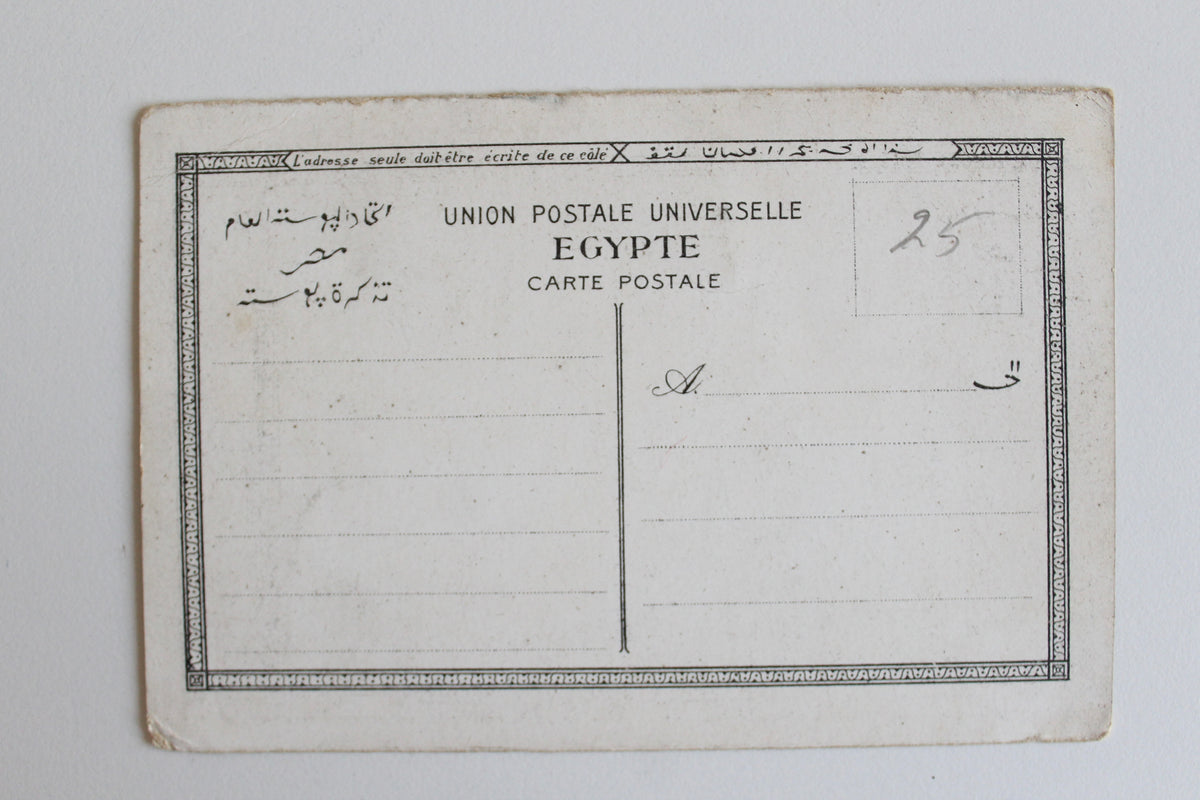 L'adresse seule doit être écrite de ce côté
اتحاد البوسته العام
مصر
تذكرة بوسته
UNION POSTALE UNIVERSELLE
EGYPTE
CARTE POSTALE
25
A.